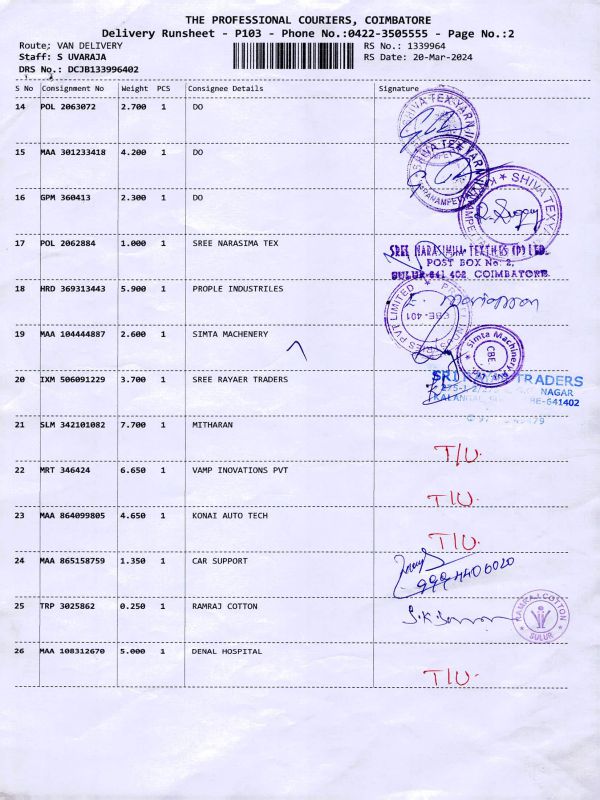 THE PROFESSIONAL COURIERS, COIMBATORE
Delivery Runsheet - P103 - Phone No.:0422-3505555 - Page No.:2
Route; VAN DELIVERY RS No.: 1339964
Staff: S UVARAJA RS Date: 20-Mar-2024
DRS No.: DCJB133996402
S No Consignment No Weight PCS Consignee Details Signature
14 POL 2063072 2.700 1 DO
SHIVA TEX-YARN
15 MAA 301233418 4.200 1 DO
SHIVA TEX-YARN
16 GPM 360413 2.300 1 DO
SHIVA TEXY
17 POL 2062884 1.000 1 SREE NARASIMA TEX
SREE NARASIMHA TEXTILES (P) LTD.
POST BOX No: 2,
SULUR-641 402 COIMBATORE
18 HRD 369313443 5.900 1 PROPLE INDUSTRILES
PVT LIMITED
CBE 401
19 MAA 104444887 2.600 1 SIMTA MACHENERY
Simta Machinery
CBE
20 IXM 506091229 3.700 1 SREE RAYAER TRADERS
SRI TRADERS
NAGAR
BE-641402
21 SLM 342101082 7.700 1 MITHARAN
T/U.
22 MRT 346424 6.650 1 VAMP INOVATIONS PVT
T/U.
23 MAA 864099805 4.650 1 KONAI AUTO TECH
T/U.
24 MAA 865158759 1.350 1 CAR SUPPORT
9994406020
25 TRP 3025862 0.250 1 RAMRAJ COTTON
RAMRAJ COTTON
SULUR
26 MAA 108312670 5.000 1 DENAL HOSPITAL
T/U.